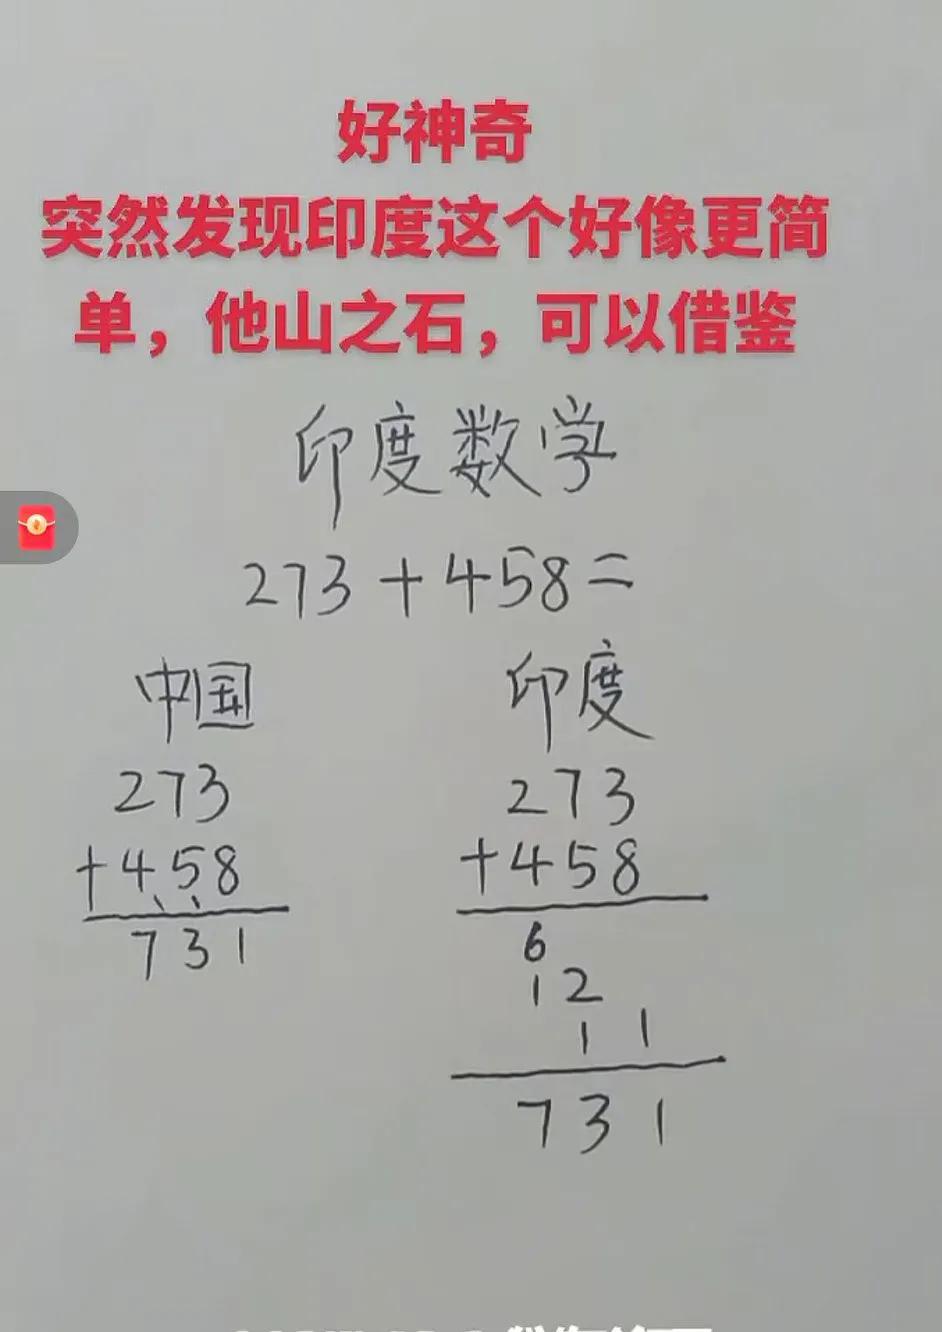 好神奇
突然发现印度这个好像更简
单，他山之石，可以借鉴
印度数学
273+458=
中国
273
+458
731
印度
273
+458
6
12
11
731